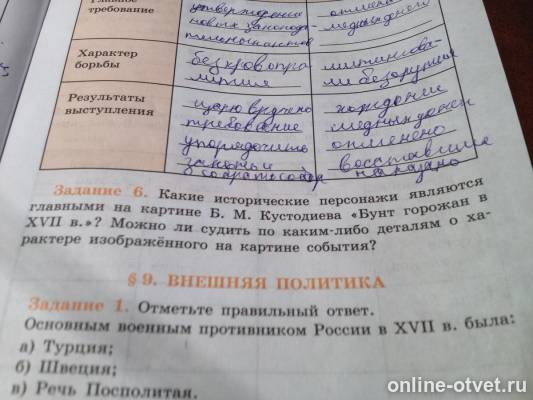 Главное
требование
утверждения
новых законода-
тельных актов
отмена
медных денег
Характер
борьбы
без кровопро
лития
митингова-
ли безоружия
Результаты
выступления
царю вручено
требование
упорядочить
законы и
хождение
медных денег
отменено
восставшие
наказано
Задание 6. Какие исторические персонажи являются
главными на картине Б. М. Кустодиева «Бунт горожан в
XVII в.»? Можно ли судить по каким-либо деталям о ха-
рактере изображённого на картине события?
§ 9. ВНЕШНЯЯ ПОЛИТИКА
Задание 1. Отметьте правильный ответ.
Основным военным противником России в XVII в. была:
а) Турция;
б) Швеция;
в) Речь Посполитая.
online-otvet.ru